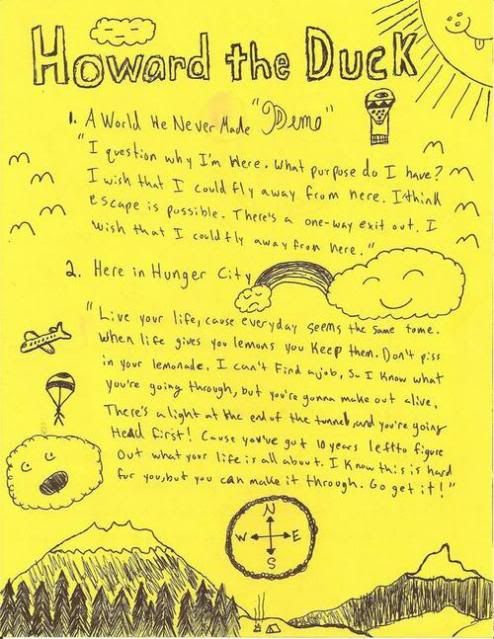 Howard the Duck
1. A World He Never Made "Demo"
"I question why I'm Here. What purpose do I have?
I wish that I could fly away from here. I think
escape is possible. There's a one-way exit out. I
wish that I could fly away from here."
2. Here in Hunger City
"Live your life, cause everyday seems the same tome.
When life gives you lemons you keep them. Don't piss
in your lemonade. I can't find a job, So I know what
you're going through, but you're gonna make out alive.
There's a light at the end of the tunnel, and you're going
Head first! Cause you've got 10 years left to figure
Out what your life is all about. I know this is hard
for you, but you can make it through. Go get it!"
N
W E
S